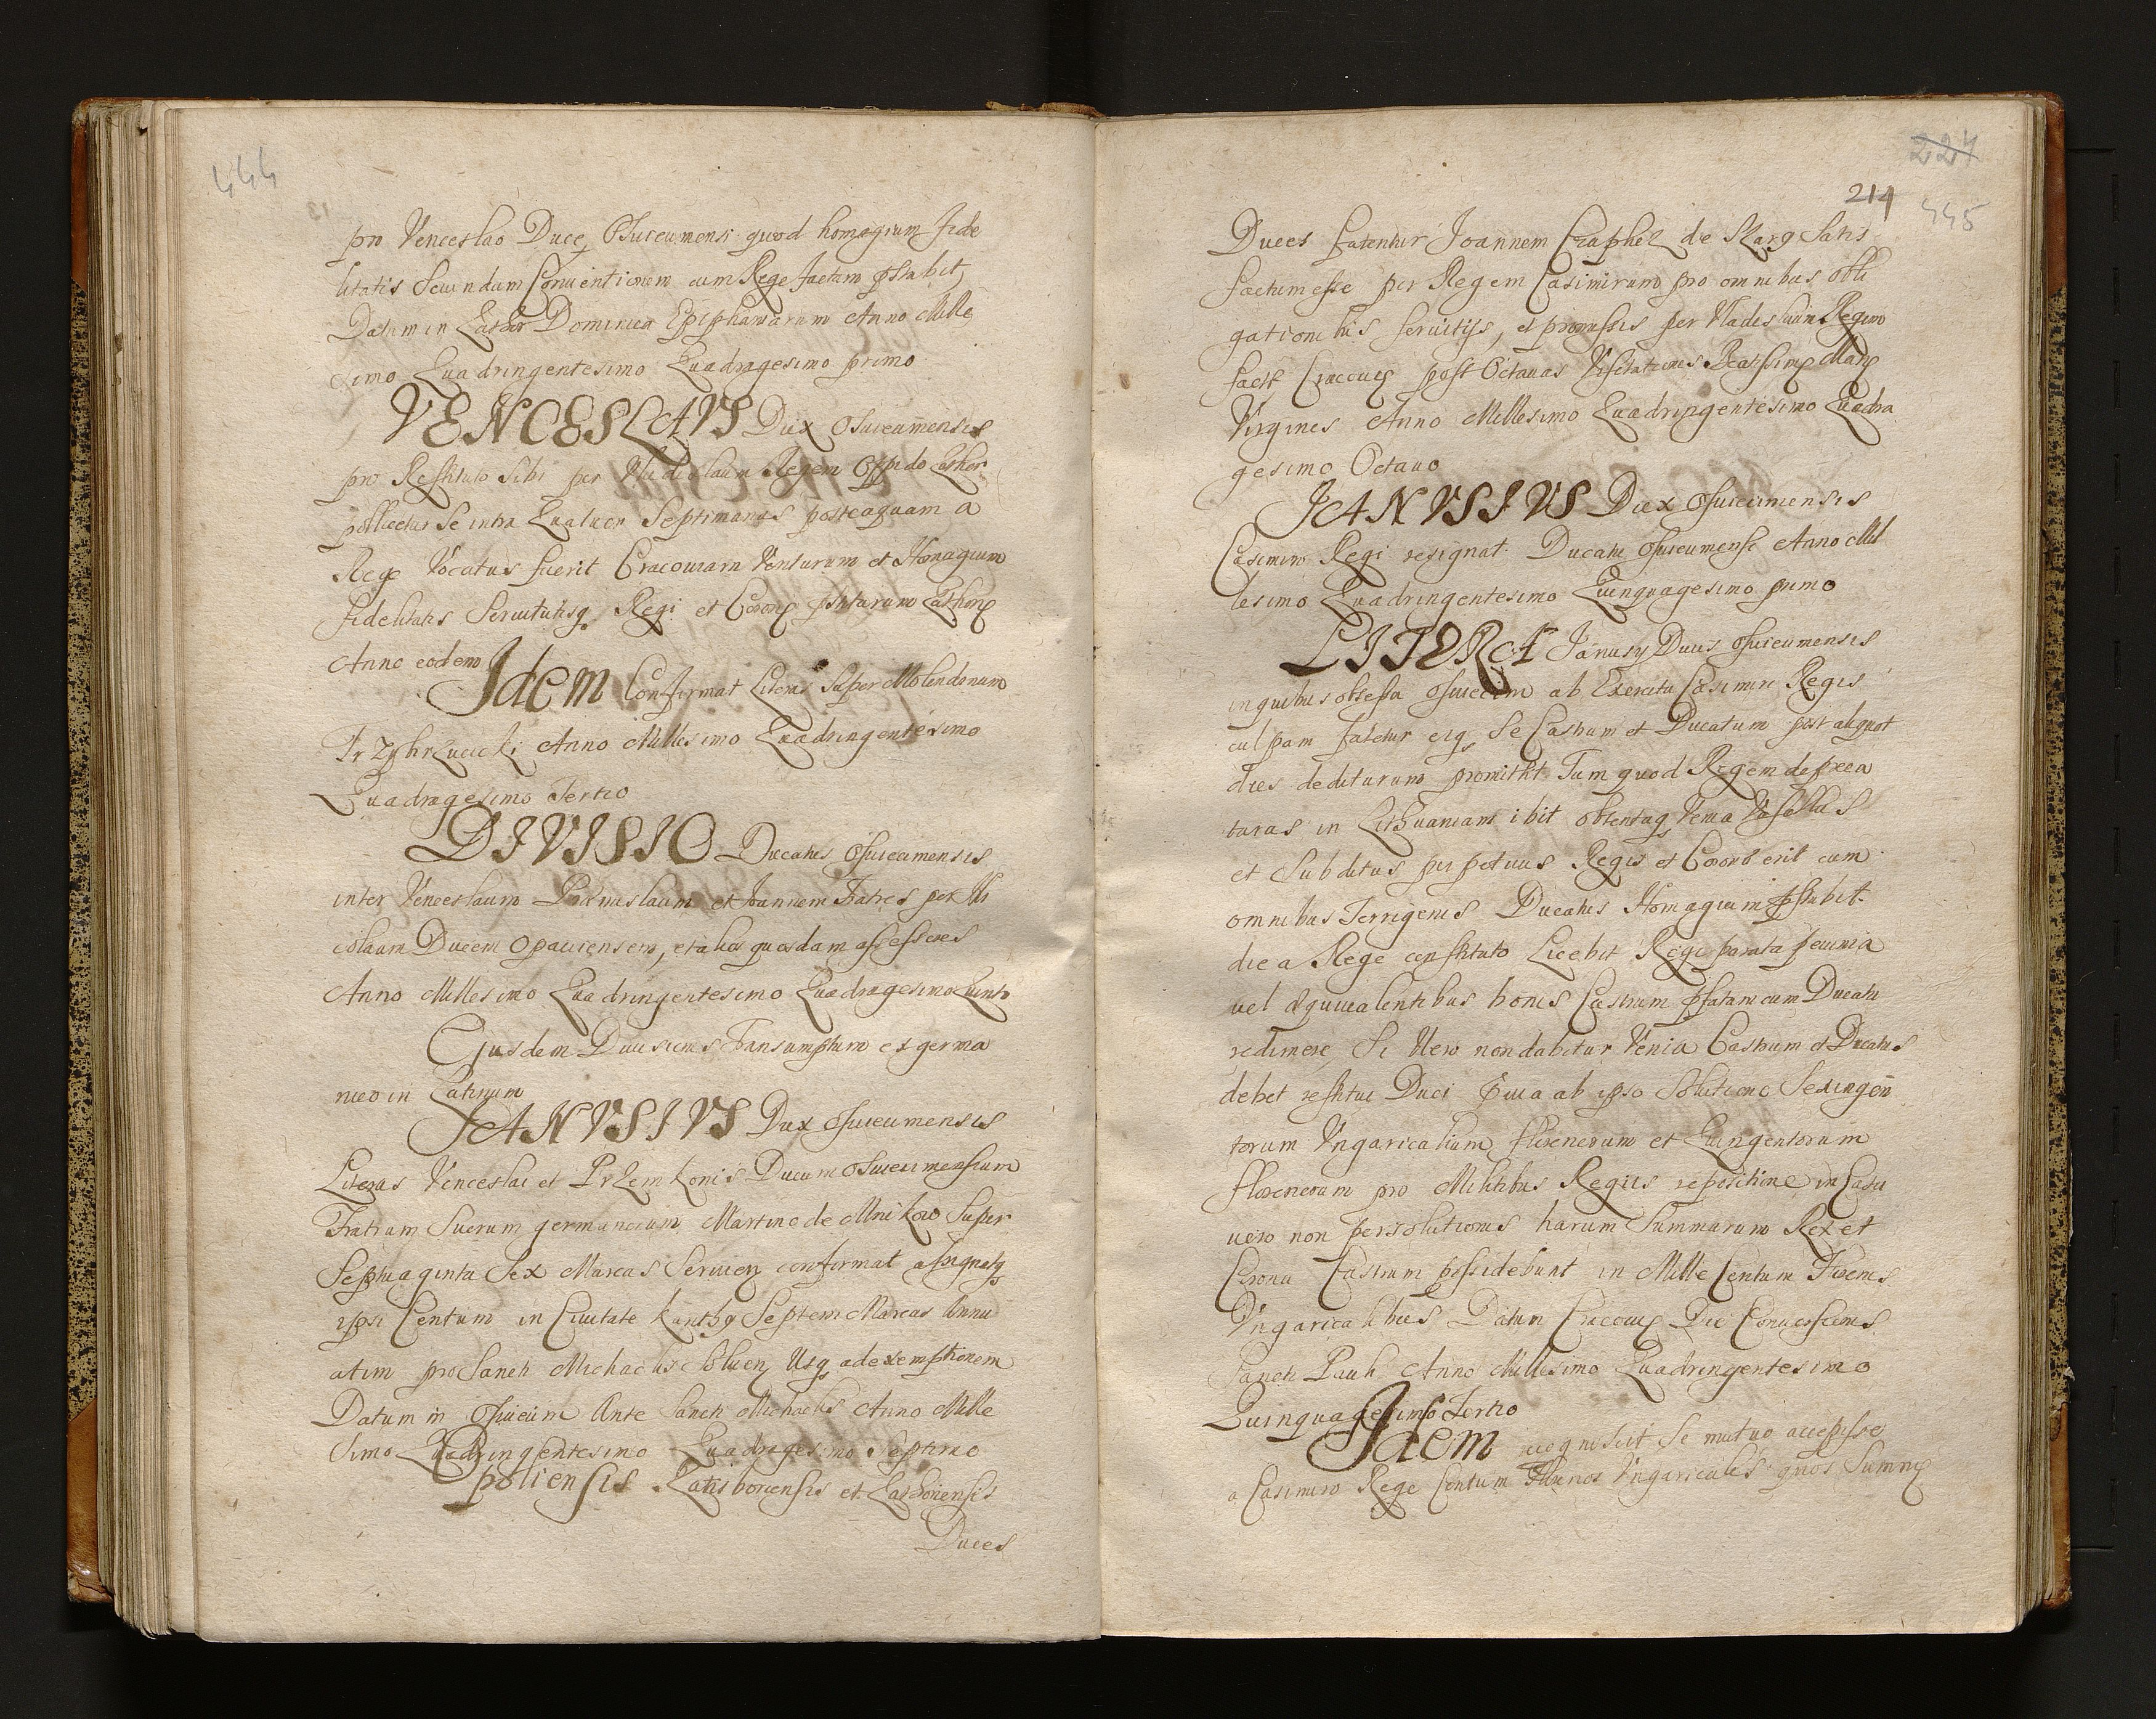 444
pro Venceslao Duce Osuiecimensi quod homagium fide
litatis Secundum Conuentionem cum Rege factam pstabit
Datum in Zathor Dominica Epiphaniarum Anno Mille
simo Quadringentesimo Quadragesimo primo
VENCESLAVS Dux Osuiecimensis
pro Restituto Sibi per Vladislaum Regem Oppido Zathor
pollicetur Se intra Quatuor Septimanas posteaquam a
Rege Vocatus fuerit Cracouiam Venturum et Homagium
fidelitatis Seruitutisq Regi et Coronę pstiturum Zathorię
Anno eodem
Idem Confirmat Literas Super Molendinum
Quadragesimo Tertio
DIVISIO Ducatus Osuiecimensis
inter Venceslaum Primislaum et Ioannem Fratres per Ni
colaum Ducem Opauiensem, et alios quosdam assessores
Anno Millesimo Quadringentesimo Quadragesimo Quinto
Ejusdem Diuisionis Transumptum ex germa
nico in Latinum
IANVSIVS Dux Osuiecimensis
Literas Venceslai et Przemkonis Ducum Osuiecimensium
Fratrum Suorum germanorum Martino de Mnikow Super
Septuaginta Sex Marcas Seruien confirmat assignatq
ipsi Centum in Ciuitate Kanthy Septem Marcas Annu
atim pro Sancti Michaelis Soluen Usq ad exemptionem
Datum in Osuiecim Ante Sancti Michaelis Anno Mille
simo Quadringentesimo Quadragesimo Septimo
poliensis Ratisboriensis et Zathoriensis
Duces
227
214
445
Duces fatentur Ioannem Czaphel de Skarg Satis
factum esse per Regem Casimirum pro omnibus obli
gationibus Seruitijs, et promissis per Vladislaum Regem
factis Cracouię post Octauas Visitationis Beatissimę Marię
Virginis Anno Millesimo Quadringentesimo Quadra
gesimo Octauo
IANVSIVS Dux Osuiecimensis
Casimiro Regi resignat Ducatu Osuiecimensi Anno Mil
lesimo Quadringentesimo Quinquagesimo primo
LITERA Ianusy Ducis Osuiecimensis
in quibus obsessa Osuiecim ab Exercitu Casimiri Regis
culpam fatetur eiq Se Castrum et Ducatum post aliquot
dies dediturum promittit Tum quod Regem depreca
turus in Lithuaniam ibit obtentaq Venia Vasallus
et Subditus perpetuus Regis et Coronę erit cum
omnibus Terrigenis Ducatus Homagium pstabit
die a Rege constituto Licebit Regi parata pecunia
uel equiualentibus bonis Castrum pfatum cum Ducatu
redimere, Si Vero non dabitur Venia Castrum et Ducatus
debet restitui Duci pia ab ipso Solutione Sexingen
torum Vngaricalium florenorum et Quingentorum
florenorum pro Militibus Regiis repositione, in Casu
uero non persolutionis harum Summarum Rex et
Corona Castrum possidebunt in Mille Centum Florenis
Vngaricalibus Datum Cracouię Die Conuersionis
Sancti Pauli Anno Millesimo Quadringentesimo
Quinquagesimo Tertio
Idem recognoscit Se mutuo accepisse
a Casimiro Rege Centum Florenos Vngaricales quos Summę